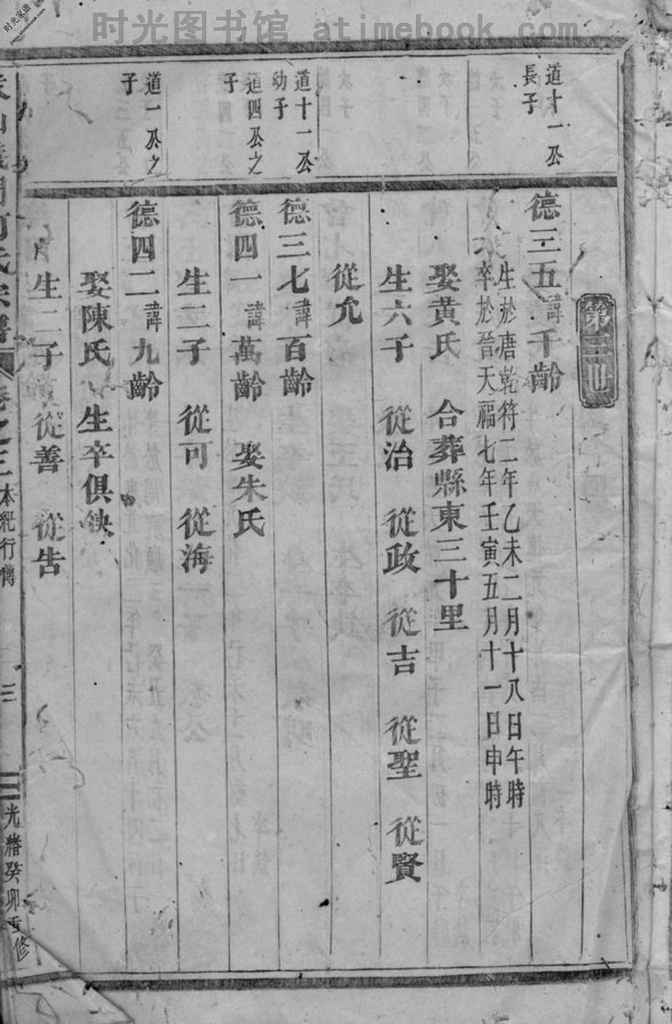 时光图书馆 atimebook.com
第三世
道十一公
長子
德三五諱千齡
生於唐乾符二年乙未二月十八日午時
卒於晉天福七年壬寅五月十一日申時
娶黄氏 合葬縣東三十里
生六子 從治 從政 從吉 從聖 從賢
從允
道十一公
幼子
德三七諱百齡
道四公之
子
德四一諱萬齡 娶朱氏
生二子 從可 從海
道一公之
子
德四二諱九齡
娶陳氏 生卒俱缺
生二子 從善 從吿
卷之三 本紀行傳
三
光緒癸卯重修